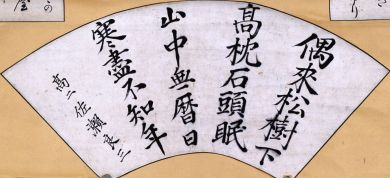 偶來松樹下
高枕石頭眠
山中無暦日
寒盡不知年
高二佐瀬良三